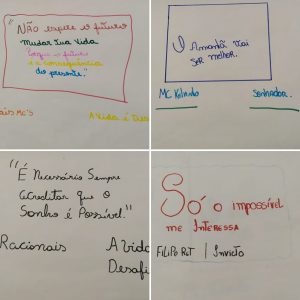 "NÃO espere o futuro
mudar tua vida
Porque o futuro
é a consequência
do presente."
nais MC'S
A vida é Desa
O Amanhã Vai
SER melhor.
MC Kelvinho
Sonhador.
"É Necessário Sempre
acreditar que o
Sonho é Possível."
Racionais
A vida
Desafi
Só o impossível
me Interessa
FiLiPE RET | Invicto